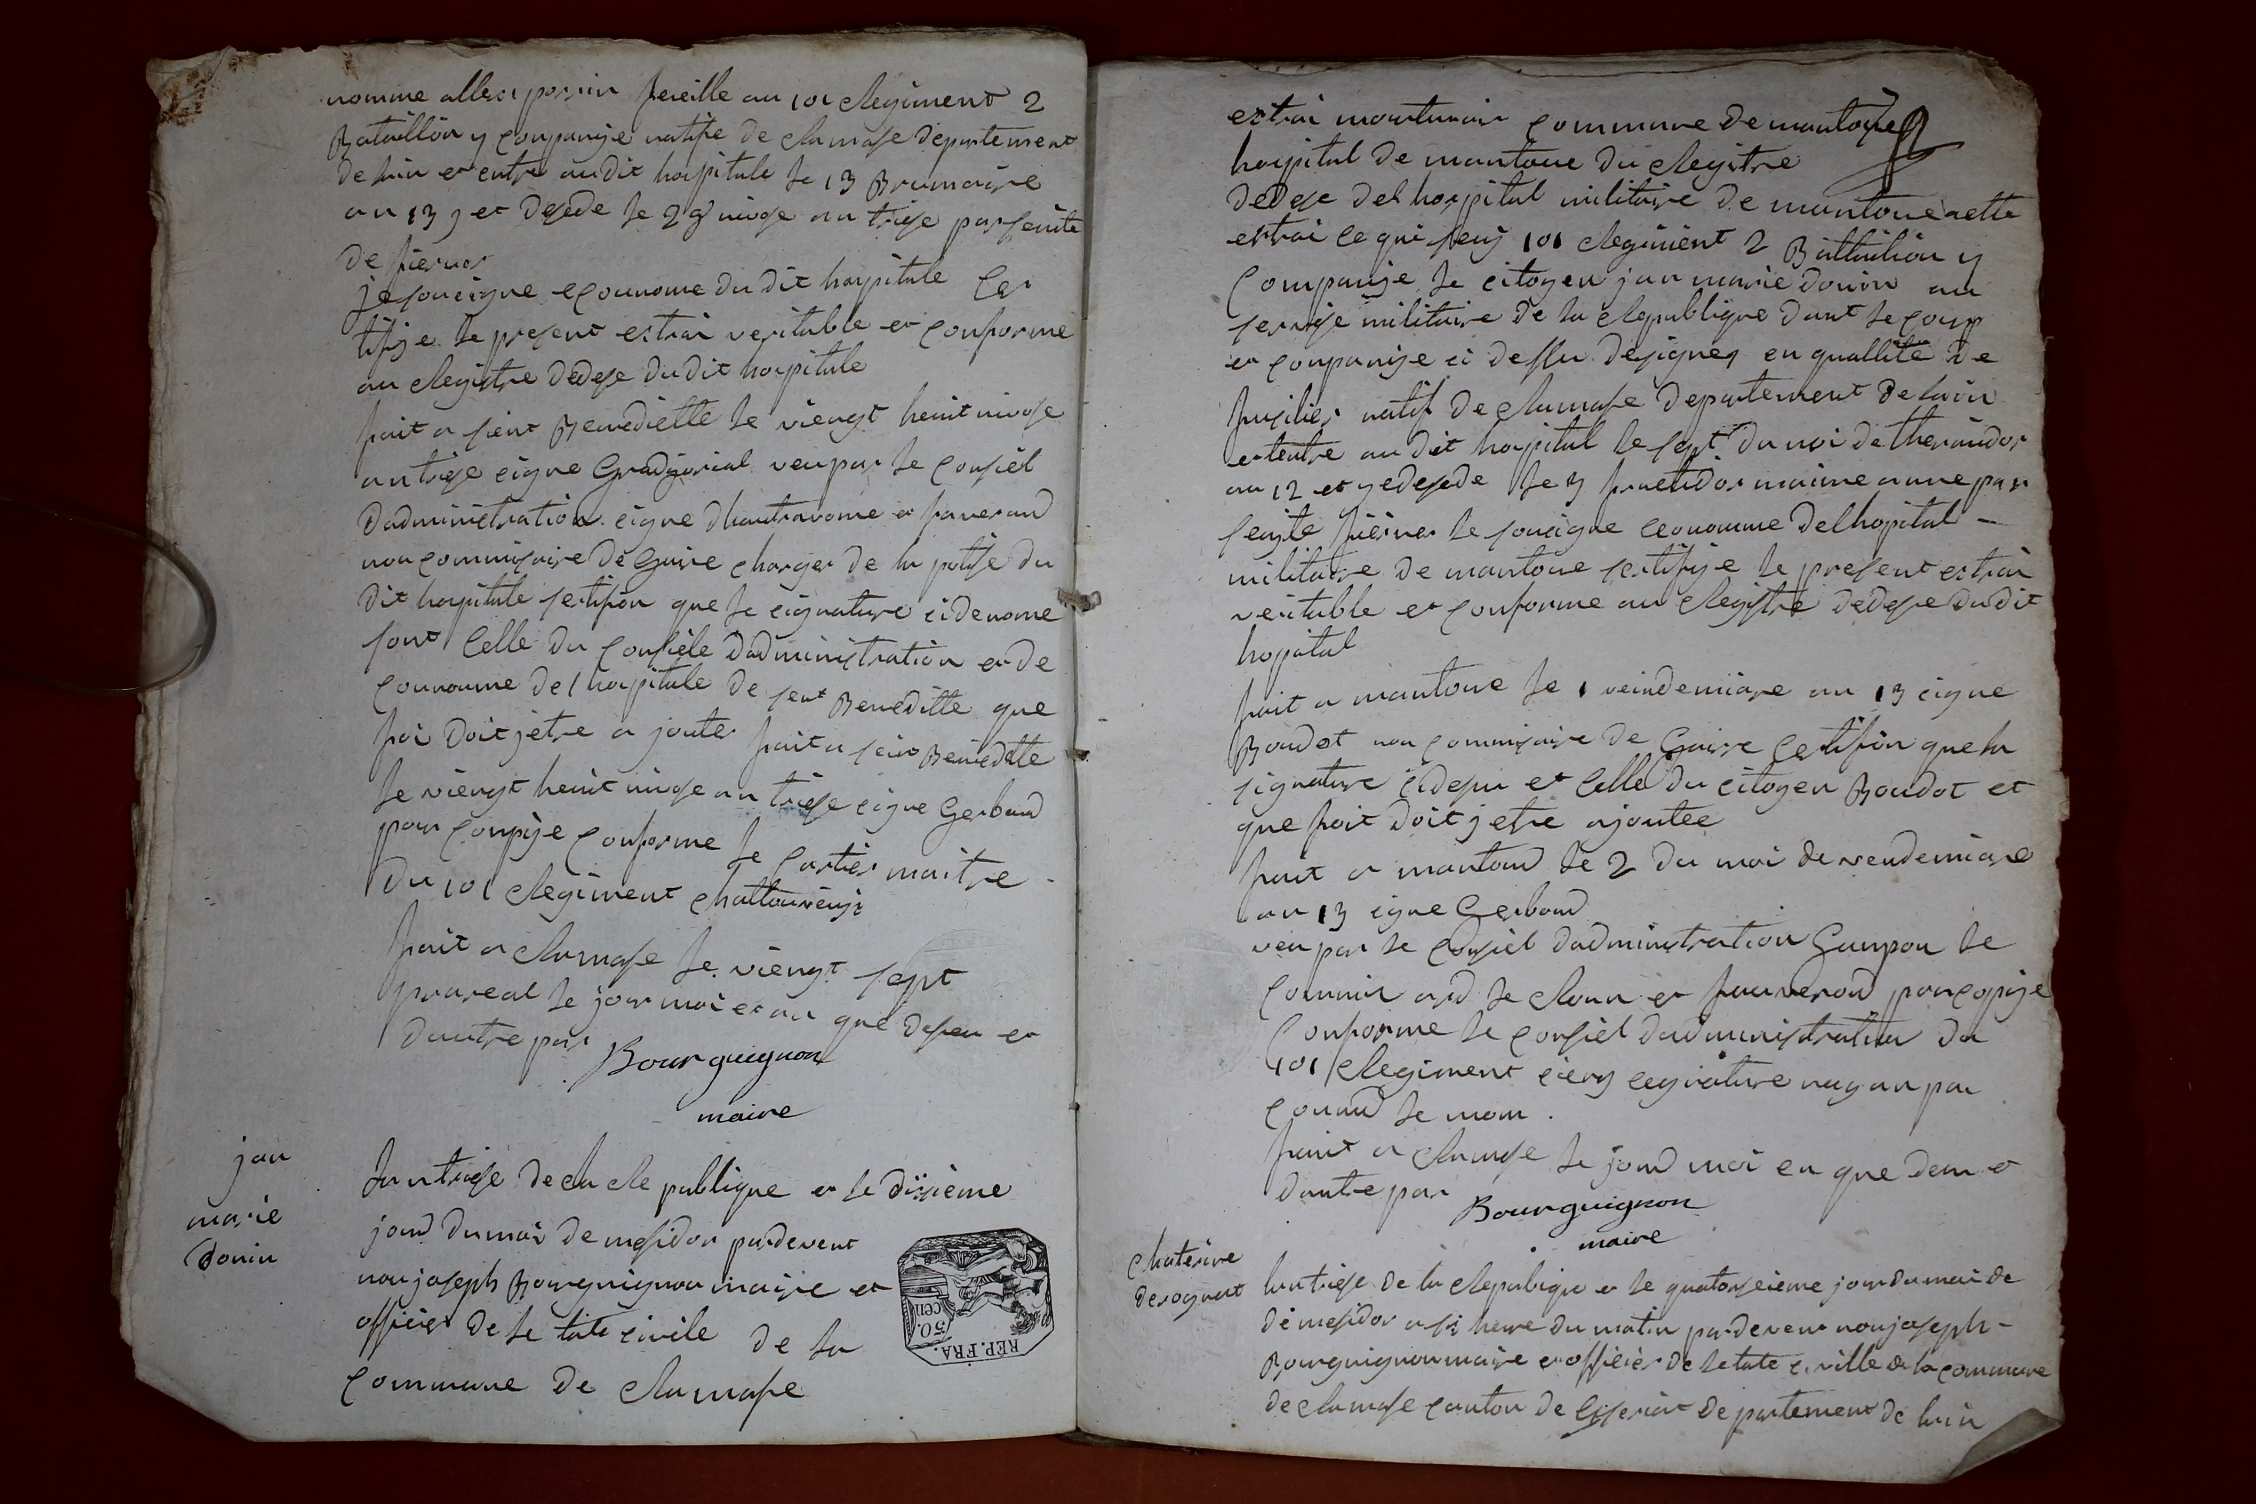 nomme allexi perrin feieille au 101 Regiment 2
Bataillon y compangie natife de Ramase departement
de lain et entre au dit hospitale le 13 Brumaire
an 13 et desede le 28 nivose an treise par seuite
de fievres
je soucigne econome du dit hospitale cer
tifiye le present estrai veritable et conforme
au Registre dedese du dit hospitale
fait a sient Benediette le viengt heuit nivose
an treise cigne veu par le consiel
dadministration cigne dhautravome et faverand
nou commisaire de Guire charger de la polise du
dit hospitale sertifion que le cignature cidenome
sont Celle du Consiele Dadministration et de
Counoume de l hospitale de sent Beneditte que
foi Doit jetre a jouter fait a sein Benedette
le viengt heuit nivose an treise cigne Gerboud
pour Conpije Conforme le Cartier maitre
Du 101 Regiment
fait a Ramase le viengt sept
prareal le jour moi et an que deseu et
dautre par
Bourguignon
maire
jan
marie
donin
lan treise de la Re publique et le disieme
joud du moi de mesidor pardevent
nou joseph Bourguignon maire et
officier de le tate civile de la
commune de Ramase
REP. FRA.
50.
cen
estrai mortuair commune de mantoue
hospital de mantoue du Registre
dedese del hospital militaire de mantoue aette
estrai ce qui seuj 101 Regiment 2 Battailion y
Compangie le citogen jan marie donin au
servise militaire de la Republique dant le corp
et conpangie ci dessu designer en quallite de
fusilier natif de Ramase departement de lain
et entre au dit hospital le sept du moi de thermidor
an 12 et y edesede le 3 fruetidor maime anne par
seuite fievres le soucigne economme del hopital
militaire de mantoue sertifiye le present estrai
veritable et conforme au Registre dedese du dit
hopital
fait a mantoue le 1 veindemiare an 13 cigne
Boudot nou commisaire de Guirre Certifion que la
signature cidesu et celle du citogen Boudot et
que foit doit jetre ajoutee
fait a mantoud le 2 du moi de vendemiare
an 13 cigne Gerboud
veu par le consiel dadministration Gunpon le
et fauverod par copije
Conforme le consiel dadministration du
101 Regiment sieng cegnature nayan pa
Conud le mom
fait a Ramase le joud moi en que desu et
dautre par
Bourguignon
maire
Chaterine
desognat
lan treise de la Republique et le quatorseieme jour du moi de
de mesidor a si heure du matin par devent nou joseph
Bourguignon maire et officier de letate civille de la commune
de Ramase canton de Ceseriat departement de lain